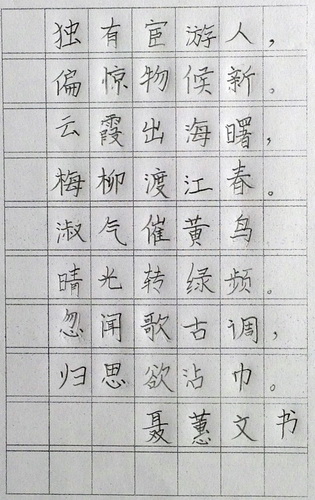 独有宦游人，
偏惊物候新。
云霞出海曙，
梅柳渡江春。
淑气催黄鸟
晴光转绿频。
忽闻歌古调，
归思欲沾巾。
聂蕙文书